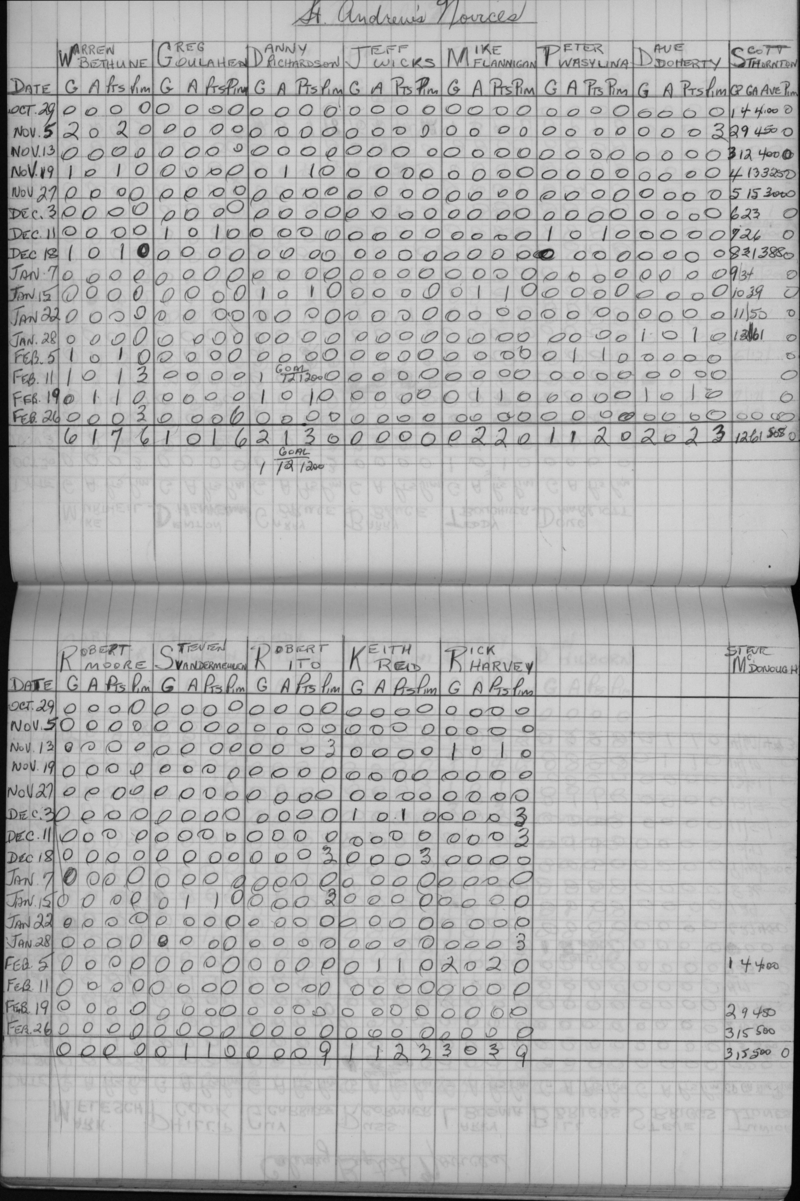 St. Andrew's Novices
WARREN BETHUNE GREG GOULAHEN DANNY RICHARDSON JEFF WICKS MIKE FLANNIGAN PETER WASYLINA DAVE DOHERTY SCOTT THORNTON
DATE G A Pts Pim G A Pts Pim G A Pts Pim G A Pts Pim G A Pts Pim G A Pts Pim G A Pts Pim GP GA AVE Pim
OCT. 29 0 0 0 0 0 0 0 0 0 0 0 0 0 0 0 0 0 0 0 0 0 0 0 0 0 0 0 0 1 4 4.00 0
NOV. 5 2 0 2 0 0 0 0 0 0 0 0 0 0 0 0 0 0 0 0 0 0 0 0 0 0 0 0 3 2 9 4.50 0
NOV. 13 0 0 0 0 0 0 0 0 0 0 0 0 0 0 0 0 0 0 0 0 0 0 0 0 0 0 0 0 3 12 4.00 0
NOV. 19 1 0 1 0 0 0 0 0 0 1 1 0 0 0 0 0 0 0 0 0 0 0 0 0 0 0 0 0 4 13 3.25 0
NOV 27 0 0 0 0 0 0 0 0 0 0 0 0 0 0 0 0 0 0 0 0 0 0 0 0 0 0 0 0 5 15 3.00 0
DEC. 3 0 0 0 0 0 0 0 0 0 0 0 0 0 0 0 0 0 0 0 0 0 0 0 0 0 0 0 0 6 23 0
DEC. 11 0 0 0 0 1 0 1 0 0 0 0 0 0 0 0 0 0 0 0 0 1 0 1 0 0 0 0 0 26 0
DEC 18 1 0 1 0 0 0 0 0 0 0 0 0 0 0 0 0 0 0 0 0 0 0 0 0 0 0 0 0 8 31 3.88 0
JAN 7 0 0 0 0 0 0 0 0 0 0 0 0 0 0 0 0 0 0 0 0 0 0 0 0 0 0 0 0 9 34 0
JAN 15 0 0 0 0 0 0 0 0 1 0 1 0 0 0 0 0 0 1 1 0 0 0 0 0 0 0 0 0 10 39 0
JAN 22 0 0 0 0 0 0 0 0 0 0 0 0 0 0 0 0 0 0 0 0 0 0 0 0 0 0 0 0 11 50 0
JAN. 28 0 0 0 0 0 0 0 0 0 0 0 0 0 0 0 0 0 0 0 0 0 0 0 0 1 0 1 0 12 61 0
FEB. 5 1 0 1 0 0 0 0 0 0 0 0 0 0 0 0 0 0 0 0 0 0 1 1 0 0 0 0 0 0
FEB. 11 1 0 1 3 0 0 0 0 1 GOAL 12 12.00 0 0 0 0 0 0 0 0 0 0 0 0 0 0 0 0 0
FEB. 19 0 1 1 0 0 0 0 0 1 0 1 0 0 0 0 0 0 1 1 0 0 0 0 0 1 0 1 0 0
FEB. 26 0 0 0 3 0 0 0 6 0 0 0 0 0 0 0 0 0 0 0 0 0 0 0 0 0 0 0 0 0 0 0 0
6 1 7 6 1 0 1 6 2 1 3 0 0 0 0 0 0 2 2 0 1 1 2 0 2 0 2 3 12 61 5.08 0
GOAL
1 12 12.00
ROBERT MOORE STEVEN VANDERMEULEN ROBERT ITO KEITH REID RICK HARVEY STEVE McDONOUGH
DATE G A Pts Pim G A Pts Pim G A Pts Pim G A Pts Pim G A Pts Pim
OCT. 29 0 0 0 0 0 0 0 0 0 0 0 0 0 0 0 0 0 0 0 0
NOV. 5 0 0 0 0 0 0 0 0 0 0 0 0 0 0 0 0 0 0 0 0
NOV. 13 0 0 0 0 0 0 0 0 0 0 0 3 0 0 0 0 1 0 1 0
NOV. 19 0 0 0 0 0 0 0 0 0 0 0 0 0 0 0 0 0 0 0 0
NOV 27 0 0 0 0 0 0 0 0 0 0 0 0 0 0 0 0 0 0 0 0
DEC. 3 0 0 0 0 0 0 0 0 0 0 0 0 1 0 1 0 0 0 0 3
DEC. 11 0 0 0 0 0 0 0 0 0 0 0 0 0 0 0 0 0 0 0 3
DEC 18 0 0 0 0 0 0 0 0 0 0 0 3 0 0 0 3 0 0 0 0
JAN. 7 0 0 0 0 0 0 0 0 0 0 0 0 0 0 0 0 0 0 0 0
JAN. 15 0 0 0 0 0 1 1 0 0 0 0 3 0 0 0 0 0 0 0 0
JAN 22 0 0 0 0 0 0 0 0 0 0 0 0 0 0 0 0 0 0 0 0
JAN. 28 0 0 0 0 0 0 0 0 0 0 0 0 0 0 0 0 0 0 0 3
FEB. 5 0 0 0 0 0 0 0 0 0 0 0 0 0 1 1 0 2 0 2 0 1 4 4.00
FEB. 11 0 0 0 0 0 0 0 0 0 0 0 0 0 0 0 0 0 0 0 0
FEB. 19 0 0 0 0 0 0 0 0 0 0 0 0 0 0 0 0 0 0 0 0 2 9 4.50
FEB. 26 0 0 0 0 0 0 0 0 0 0 0 0 0 0 0 0 0 0 0 0 3 15 5.00
0 0 0 0 0 1 1 0 0 0 0 9 1 1 2 3 3 0 3 9 3 15 5.00 0